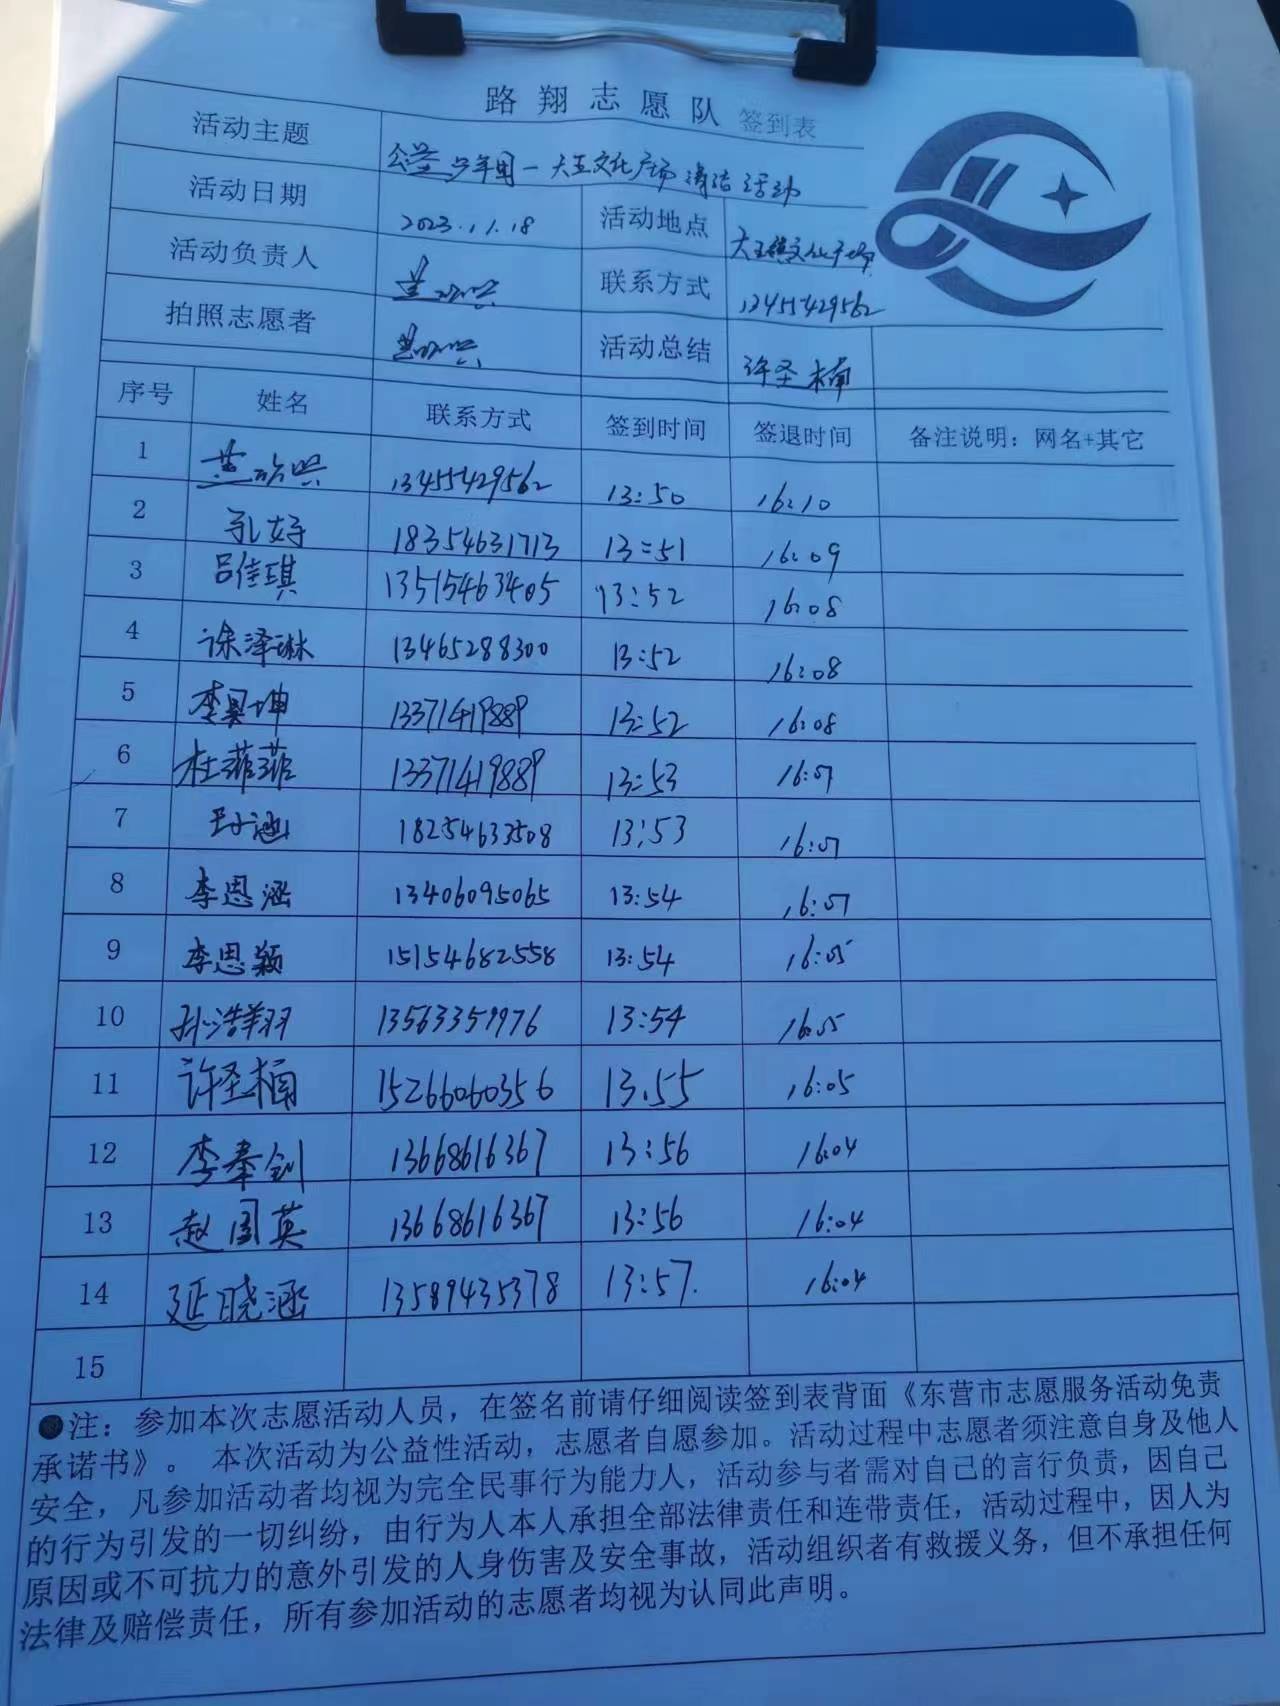 路翔志愿队 签到表
活动主题 公益少年团一大王文化广场清洁活动
活动日期 2023.11.18 活动地点 大王镇文化广场
活动负责人 联系方式 13455429562
拍照志愿者 活动总结 许圣楠
序号 姓名 联系方式 签到时间 签退时间 备注说明：网名+其它
1 13455429562 13:50 16:10
2 孔好 18354631713 13:51 16:09
3 吕佳琪 13515463405 13:52 16:08
4 徐泽琳 13465288300 13:52 16:08
5 李昊坤 13371419889 13:52 16:08
6 杜菲菲 13371419889 13:53 16:07
7 18254633508 13:53 16:07
8 李恩涵 13406095065 13:54 16:07
9 李思颖 15154682558 13:54 16:05
10 孙浩翔 13563359976 13:54 16:05
11 许圣楠 15266060356 13.55 16:05
12 李秦钊 13668616367 13:56 16:04
13 赵国英 13668616367 13:56 16:04
14 延晓涵 13589435378 13:57. 16:04
15
●注：参加本次志愿活动人员，在签名前请仔细阅读签到表背面《东营市志愿服务活动免责
承诺书》。 本次活动为公益性活动，志愿者自愿参加。活动过程中志愿者须注意自身及他人
安全，凡参加活动者均视为完全民事行为能力人，活动参与者需对自己的言行负责，因自己
的行为引发的一切纠纷，由行为人本人承担全部法律责任和连带责任，活动过程中，因人为
原因或不可抗力的意外引发的人身伤害及安全事故，活动组织者有救援义务，但不承担任何
法律及赔偿责任，所有参加活动的志愿者均视为认同此声明。